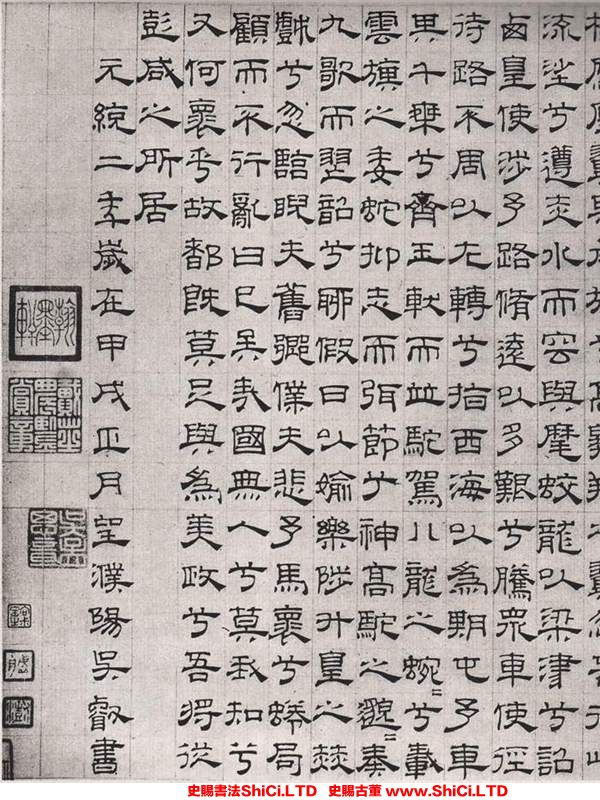 流沙兮遵赤水而容與麾蛟龍以梁津兮詔
西皇使涉予路脩遠以多艱兮騰眾車使徑
待路不周以左轉兮指西海以為期屯予車
其千乘兮齊玉軑而並馳駕八龍之蜿=兮載
雲旗之委蛇抑志而弭節兮神高馳之邈=奏
九歌而舞韶兮聊假日以媮樂陟升皇之赫
戲兮忽臨睨夫舊鄉僕夫悲予馬褱兮蜷局
顧而不行亂曰已矣哉國無人兮莫我知兮
又何褱乎故都既莫足與為美政兮吾將從
彭咸之所居
元統二年歲在甲戌正月望濮陽吳叡書
史賜書法ShiCi.LTD 史賜古董ShiCi.LTD